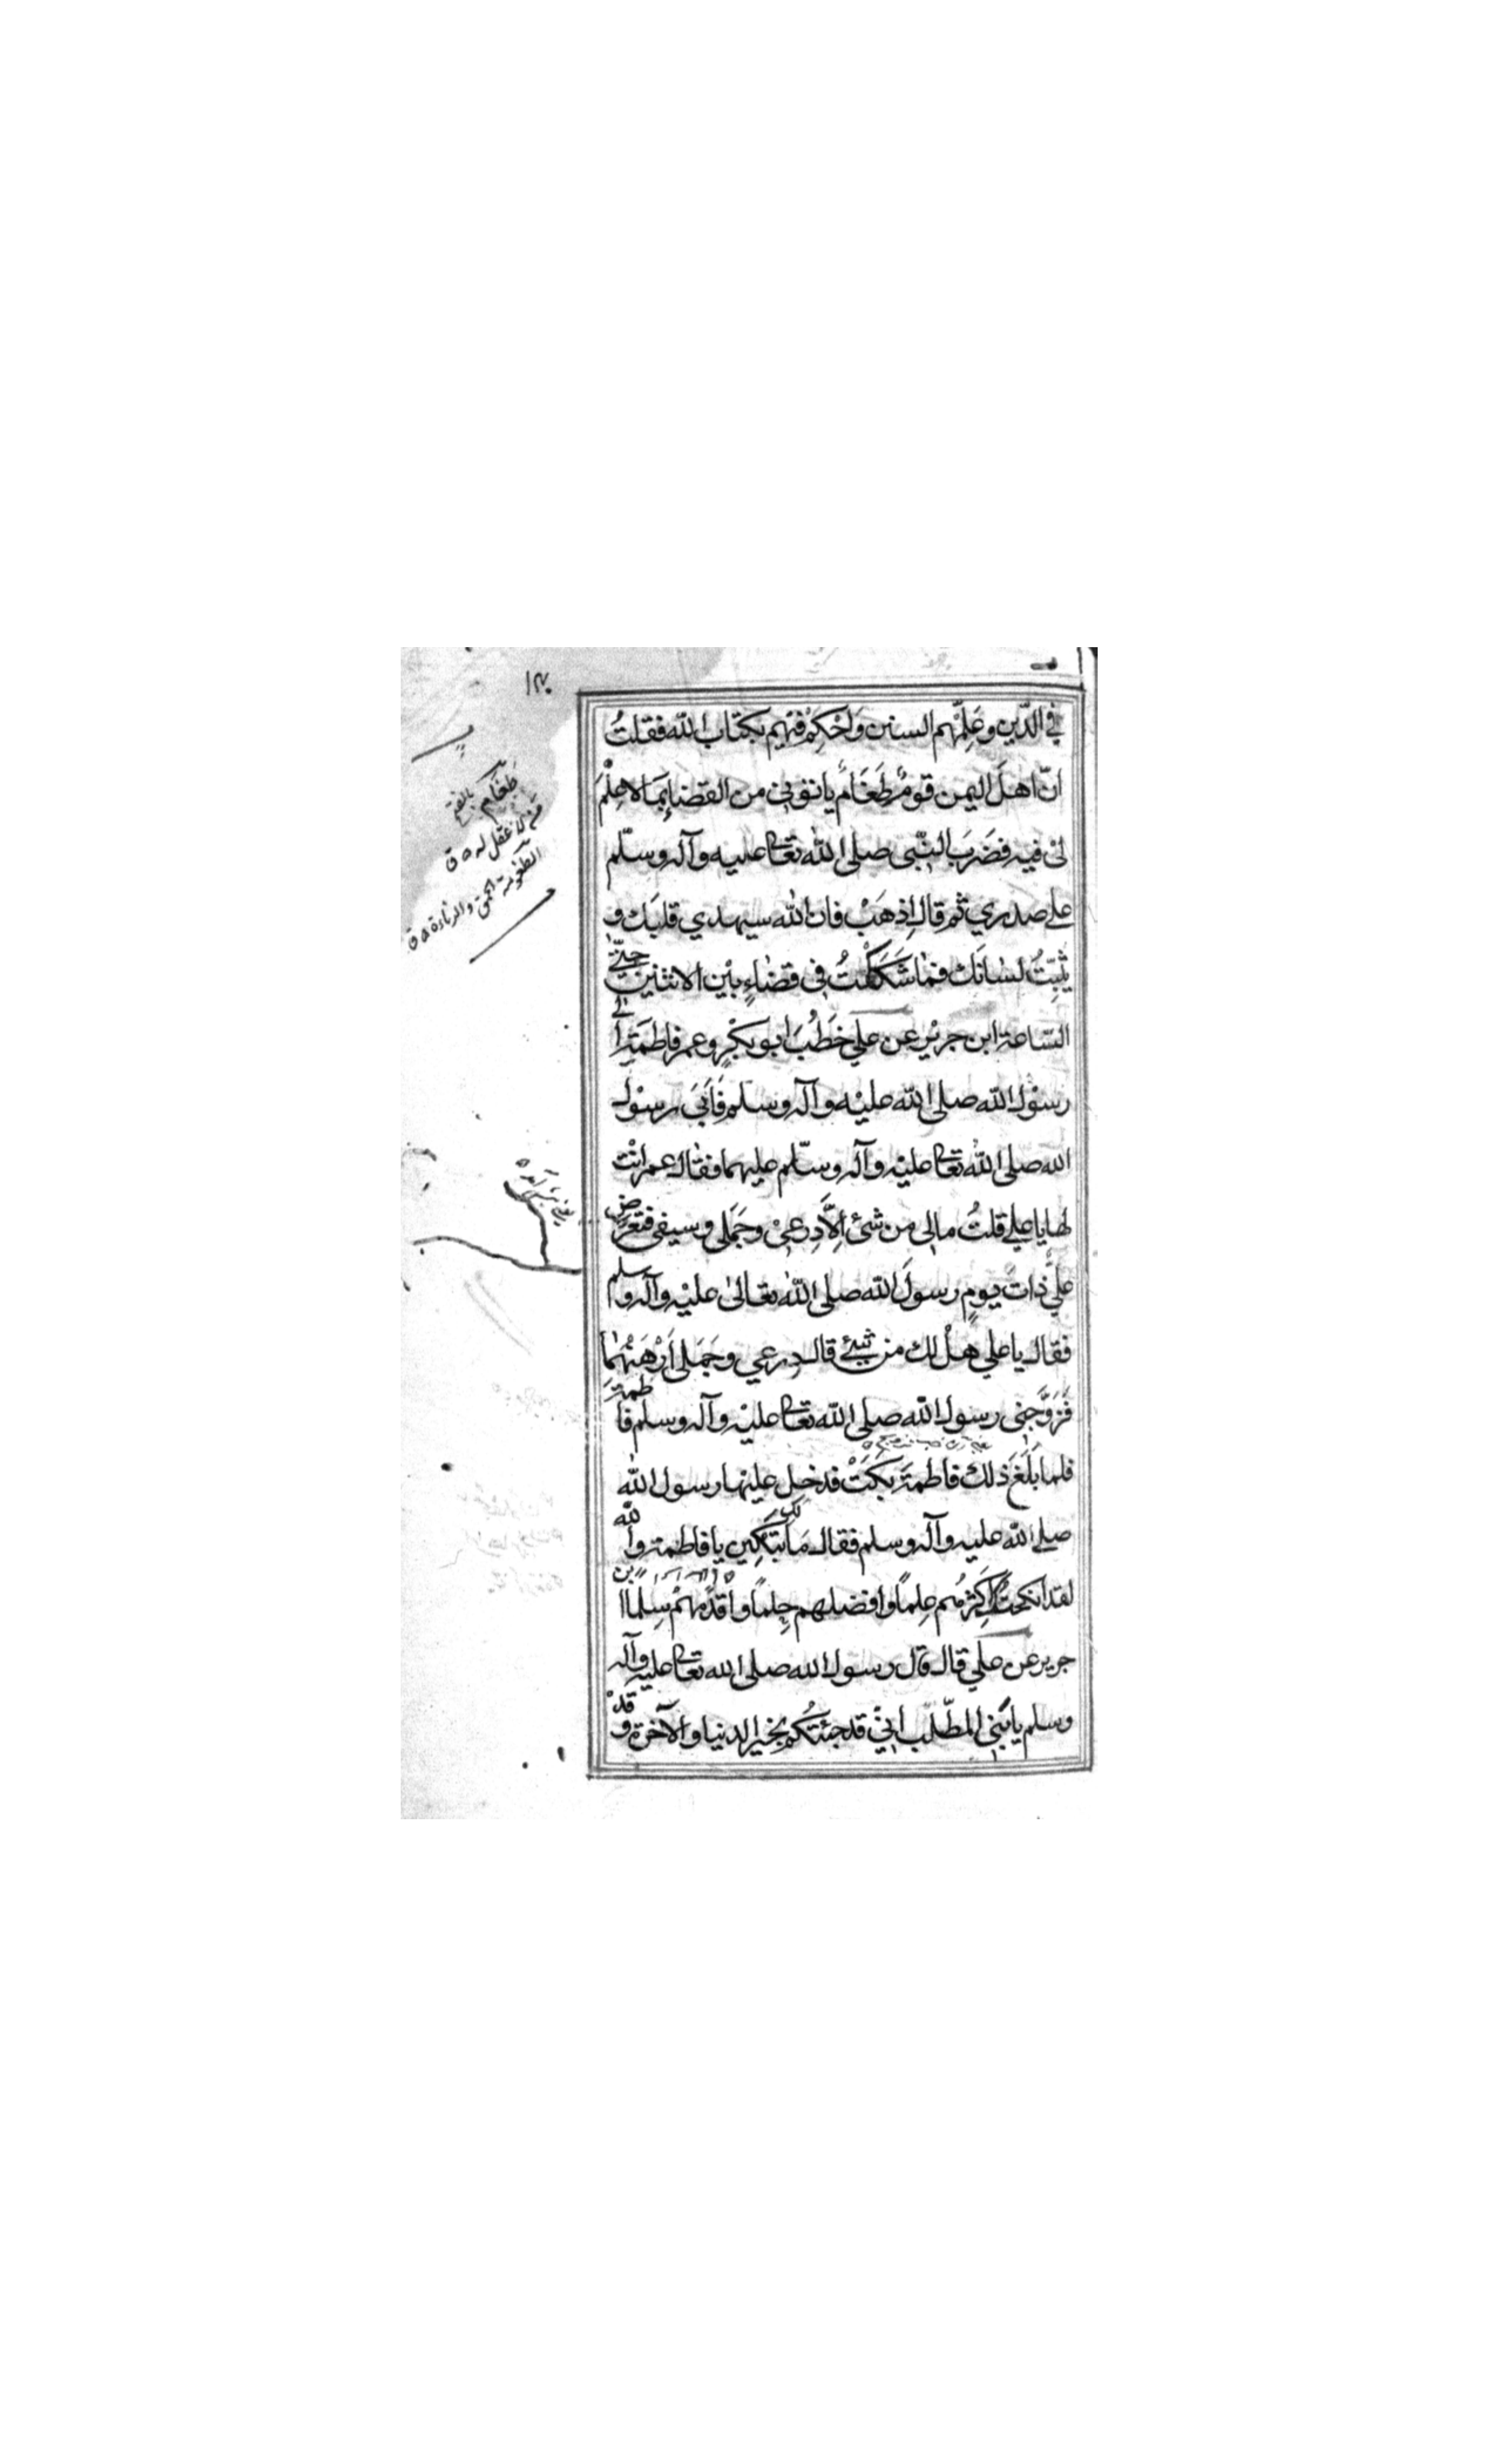 ١٣٠
في الدّين وعَلِّمْهم السنن وَاحْكِمْ فيهم بكتاب الله فقلتُ
انّ اهلَ اليمن قومٌ طَغَامٌ ياتوني من القضا بِمَا لا عِلْمَ
لى فيه فضَرَبَ النّبى صلى الله تعالى عليه وآله وسلّم
على صدري ثم قال اِذهَبْ فان الله سيهدي قلبَك و
يُثَبِّتُ لسَانَك فما شَكَكْتُ في قضاءٍ بيْن الاثنين حتّى
السّاعة ابن جرير عن علي خَطَبَ ابو بكْرٍ وعمر فاطمَةَ الى
رسوْل الله صلى الله عليْه وآله وسلم فَاَبَى رسوْل
الله صلى الله تعالى عليْه وآله وسلّم عليهما فقال عمر انْت
لها يا علي قلتُ مالى من شئ اِلاَّ دِرعىْ وجَمَلى وسيفى فتعرّض
عليٌّ ذاتَ يومٍ رسولَ الله صلى الله تعالىٰ عليْه وآله وسلم
فقال يا علي هلْ لك من شيئ قال دِرعي وجَمَلى اَرْهَنُهما
فَزَوَّجَنِى رسول الله صلى الله تعالى عليْه وآله وسلم فاطمةَ
فلما بَلَغَ ذلك فاطمةَ بَكَتْ فدخل عليْها رسول الله
صلى الله عليه وآله وسلم فقال مَا لَكِ تبكين يا فاطمة والله
لقد انكحتُكِ اكثرَهُم عِلمًا وافضلهم حِلمًا واقدمَهُمْ سِلْمًا ابن
جرير عن علي قال قال رسول الله صلى الله تعالى عليه وآله
وسلم يا بَنِى المطّلب انِّى قد جئتُكم بخير الدنيا والآخرة وقدْ
طَغَام بالفتح
مَن لا عقل له ق
الطغومة الحمق والدناءة ق